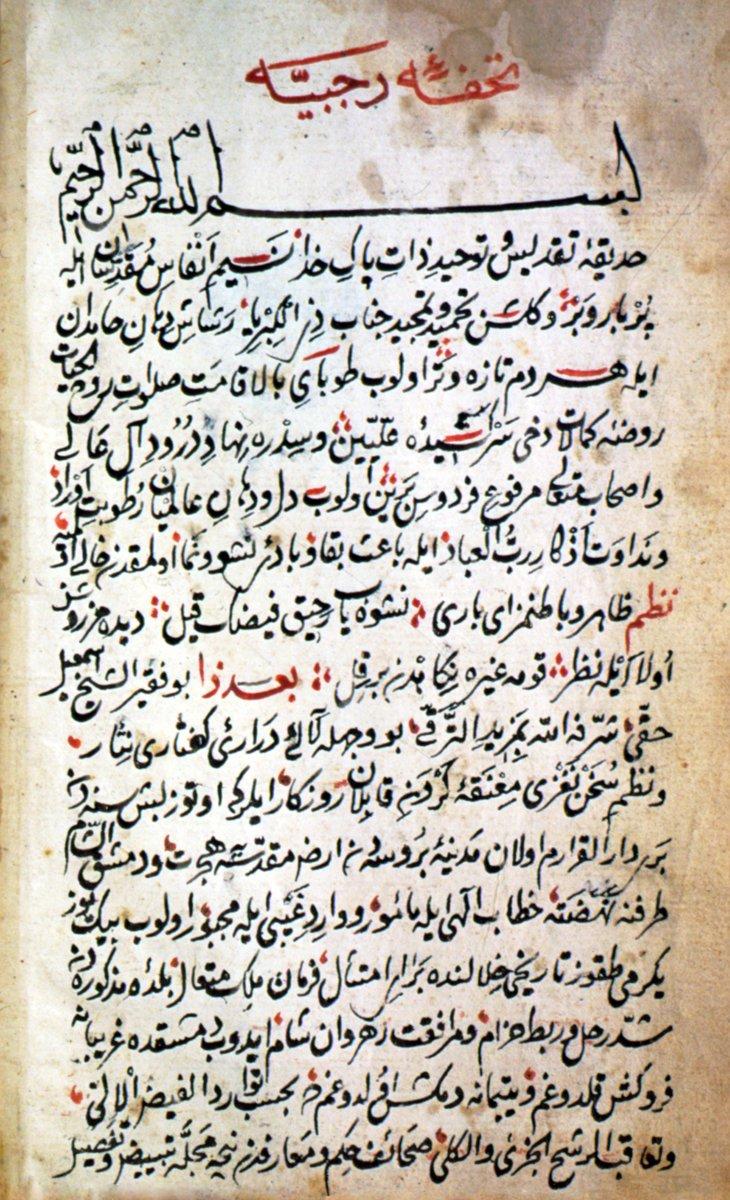 تحفهٔ رجبيّه
بسم الله الرحمن الرحيم
حديقهٔ تقديس و توحيد ذاتِ پاكِ خدا نَسيمِ اَنْفاسِ مُقدّسان ايله
پُرْ بار و بَرْ و كلشن تحميد و تمجيد جناب ذى الكبريا رَشاشِ دهانِ حامدان
ايله هر دم تازه وتَرْ اولوب طوباىِ بالا قامتِ صلواتِ
روضهٔ كمالات دخى سَرْ كشيدهٔ علّيّين و سِدْره نهادِ دُرُودِ آلِ عالى
واصحابِ متعالى مرفوعِ فردوسِ بَرين اولوب دل ودهانِ عالميان رُطوبتِ اَوْراد
ونداوت اَذْكارِ ربّ العباد ايله باعث بقا و بادئ نشو ونما اولمقدن خالى
نظم ظاهر و باطنمز اى بارى نشوه ياب رحيق فيضك قيل ديده مز
اولا كيله نظار قومه غيره نكاهمزن بر قيل بعد ذا بو فقير الشيخ اسمعيل
حقّى شرّفه الله بمزيد الترقّى بو وجهله لآلئ دَرارئ كفتارى نثار
ونظم سُخَن نَغْزى مِعْنَقهٔ كَرْدنِ قابلان روزكار ايلر كه اوتوز بش سنه دن
بَرى دار القرارم اولان مَدينهٔ بُروسه دن ارض مقدّسه يه هجرت ودمشق الشام
طرفنه نهضته خطاب الٓهى ايله مأمور و واردِ غَيْبى ايله مجبور اولوب بيك يوز
يكرمى طقوز تاريخى خلالنده بَراىِ امتثال فرمان ملك متعال بلدهٔ مذكوره دن
شدّ رحل و ربط حزام ومرافقت رهروان شام ايدوب دمشقده غريبانه
فروكش قلدوغم و يتيمانه دمكش اولدوغم بحسب توارد الفيض الالٓهى
وتعاقب الرشح الجزئى والكلى صحائف حِكم ومعارفدن نيجه مجلّه تبييض وتفصيل